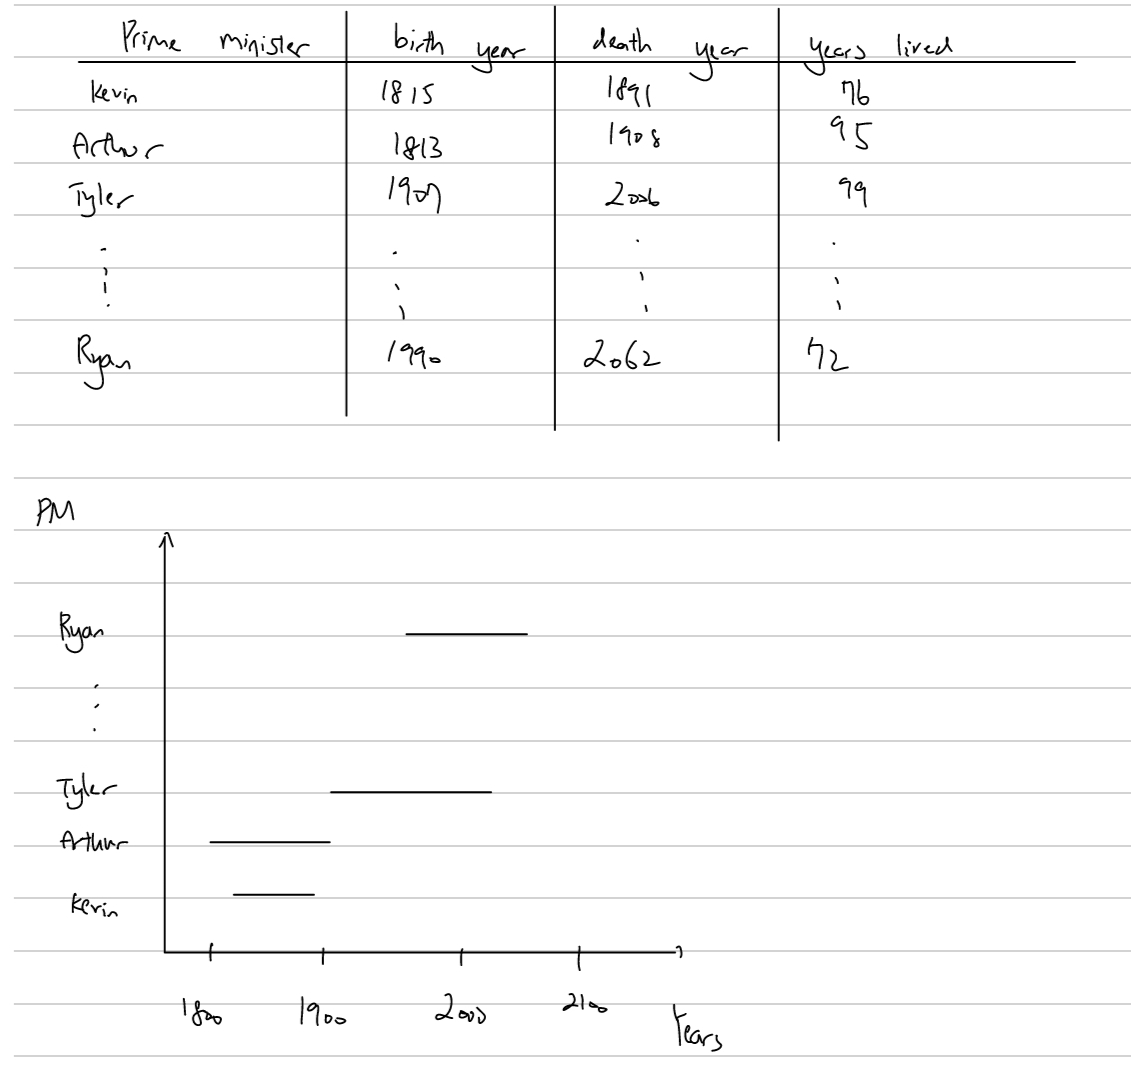 Prime minister birth year death year years lived
Kevin 1815 1891 76
Arthur 1813 1908 95
Tyler 1907 2006 99
Ryan 1990 2062 72
PM
Ryan
Tyler
Arthur
Kevin
1800 1900 2000 2100
Years